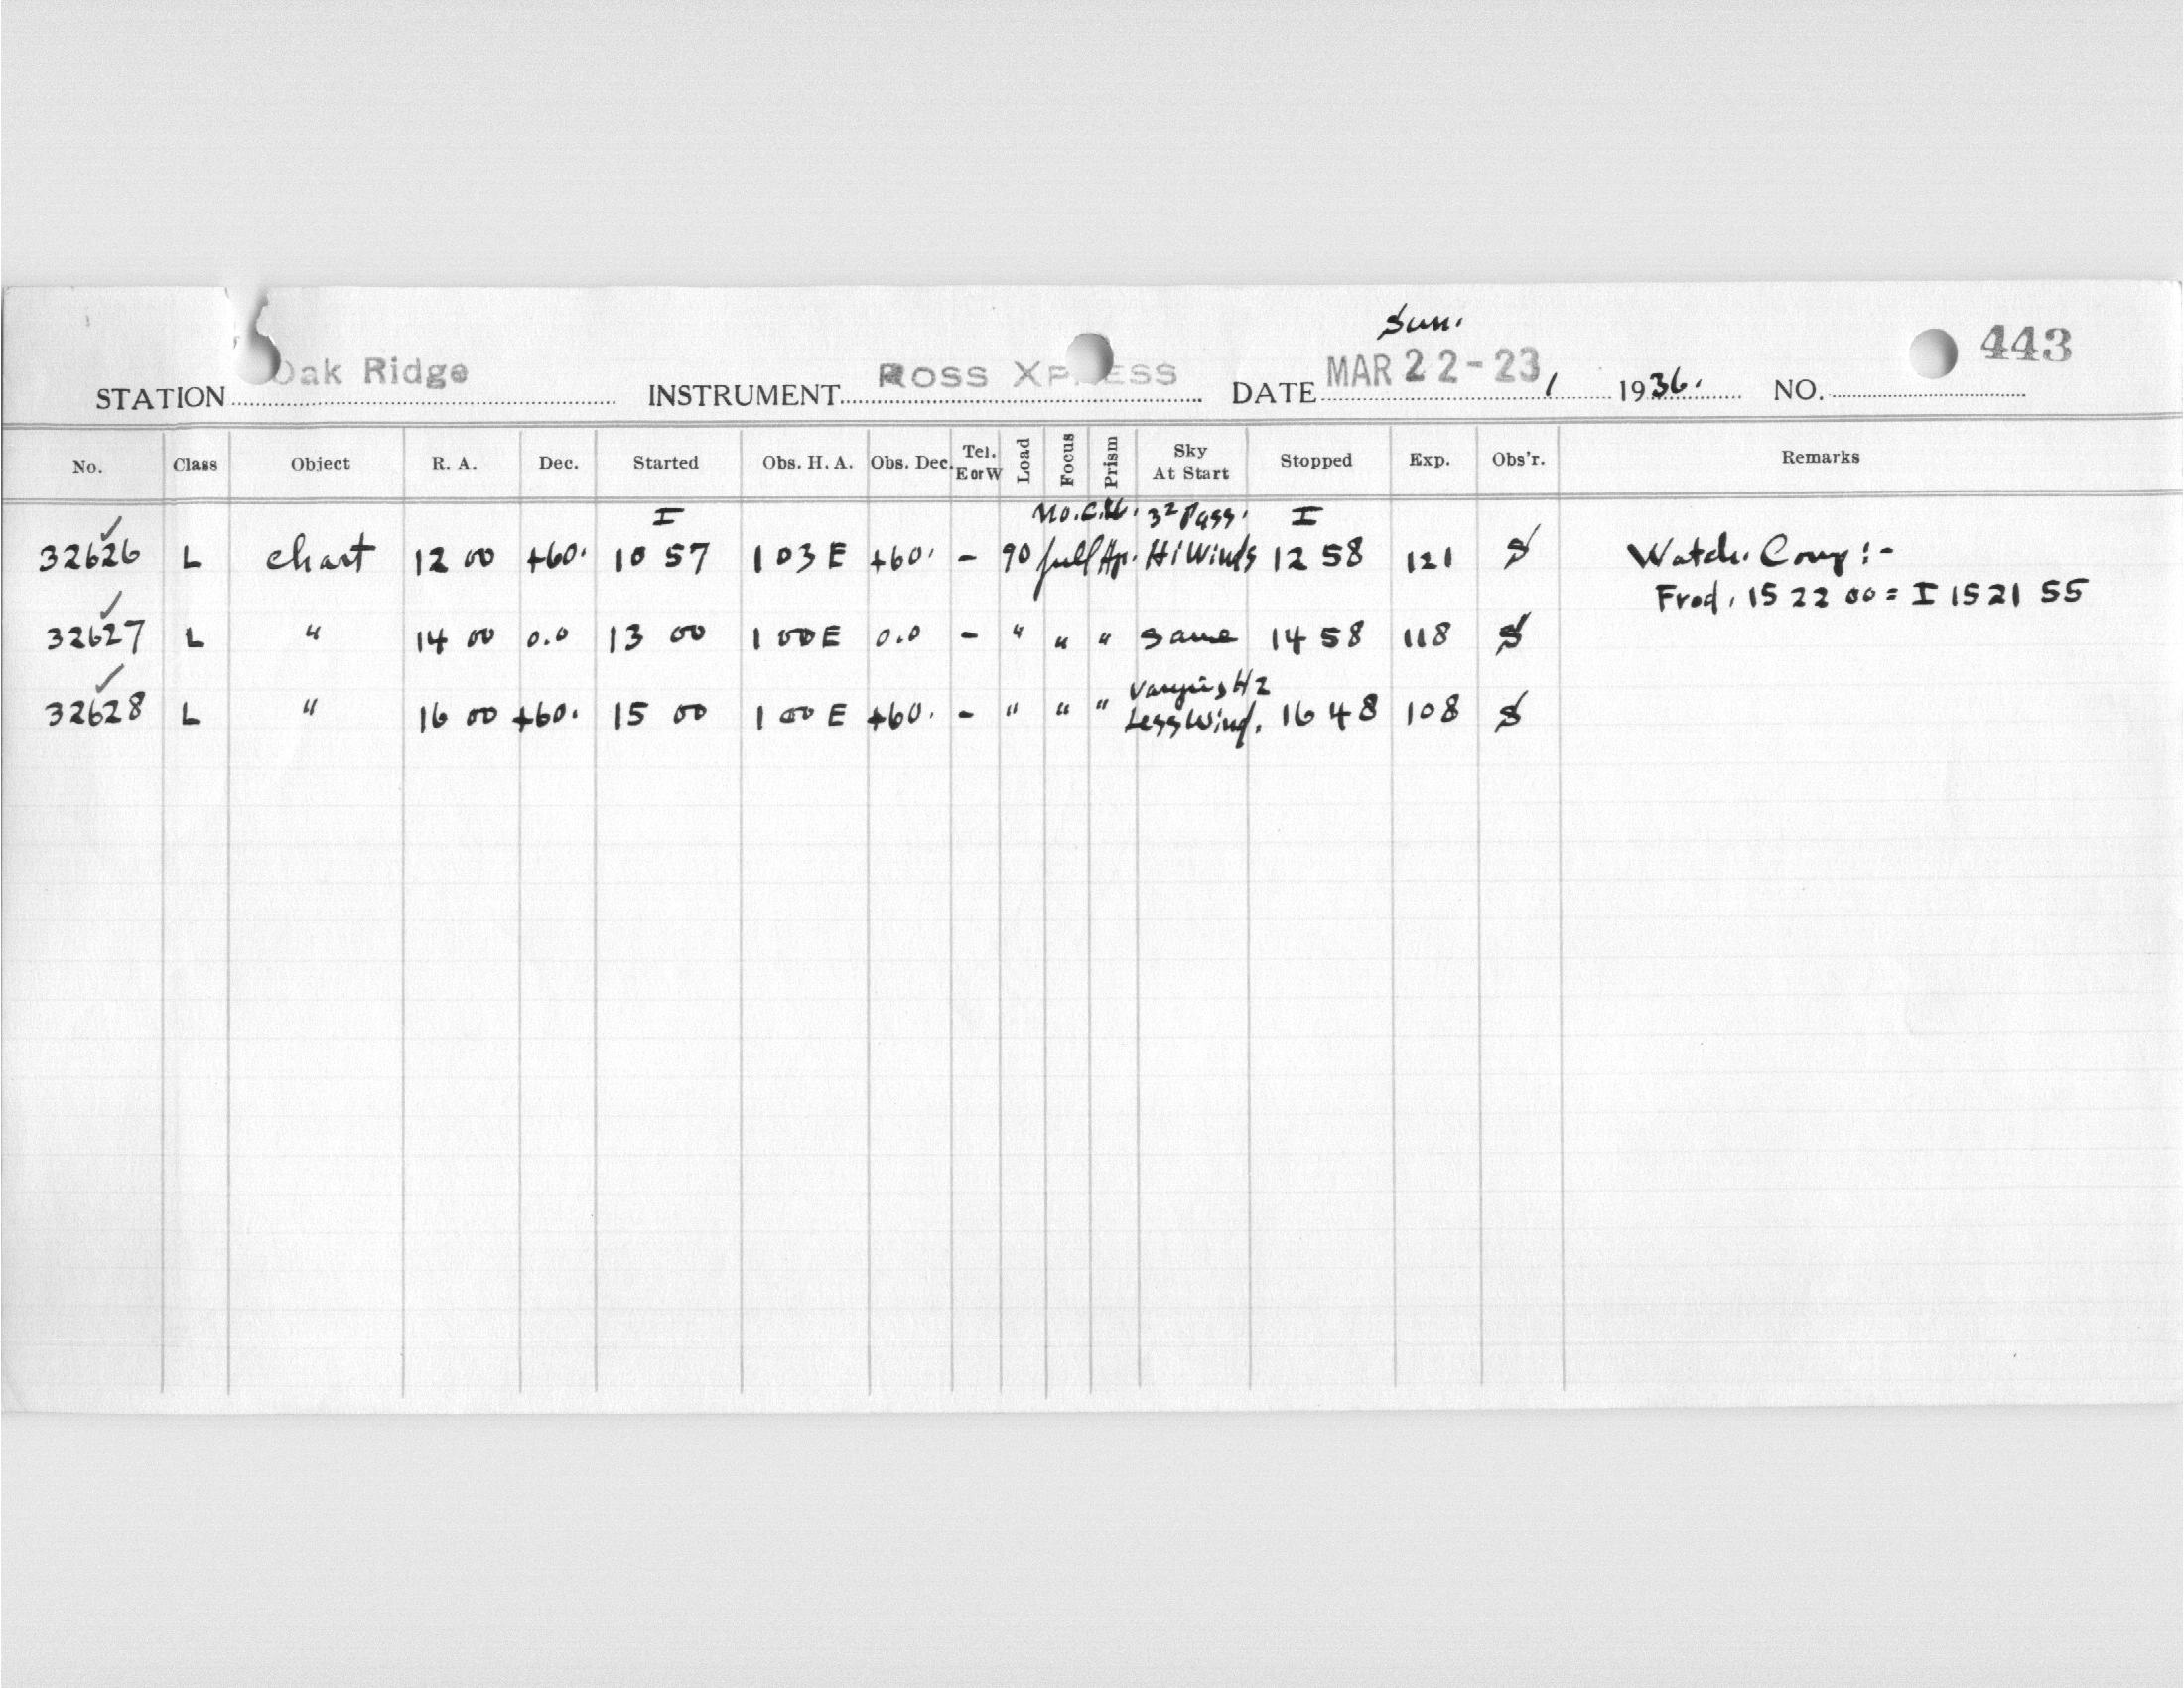 Sun.
STATION Oak Ridge INSTRUMENT ROSS XPRESS DATE MAR 22-23, 1936. NO. 443
No. Class Object R. A. Dec. Started Obs. H. A. Obs. Dec. Tel. E or W Load Focus Prism Sky At Start Stopped Exp. Obs'r. Remarks
I 3² Pass. I
32626 ✓ L chart 12 00 +60. 10 57 1 03 E +60. - 90 full Ap. Hi Winds 12 58 121 S Watch. Comp :-
Frod. 15 22 00 = I 15 21 55
32627 ✓ L " 14 00 0.0 13 00 1 00 E 0.0 - " " " Same 14 58 118 S
Varying H2
32628 ✓ L " 16 00 +60. 15 00 1 00 E +60. - " " " Less Wind. 16 48 108 S